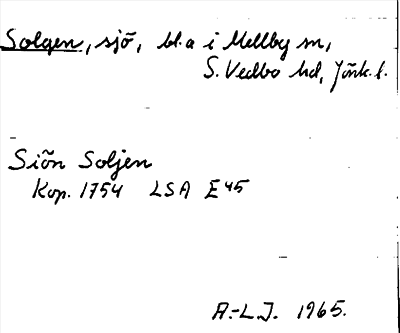 Solgen, sjö, bl.a i Mellby sn,
S. Vedbo hd, Jönk. l.
Siön Soljen
Kop. 1754 LSA E45
A.-L J. 1965.